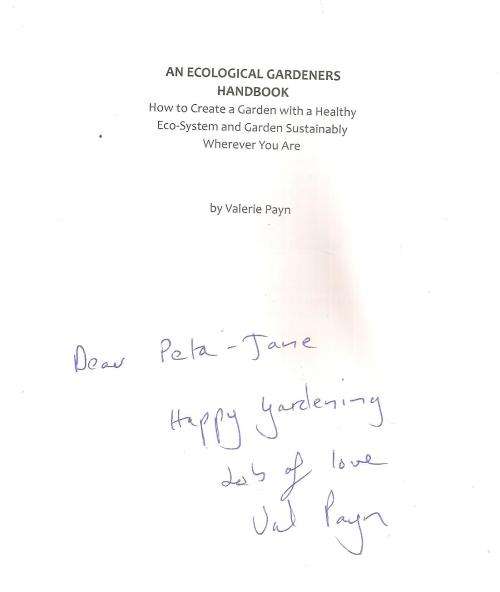 AN ECOLOGICAL GARDENERS
HANDBOOK
How to Create a Garden with a Healthy
Eco-System and Garden Sustainably
Wherever You Are
by Valerie Payn
Dear Peta-Jane
Happy gardening
Lots of love
Val Payn